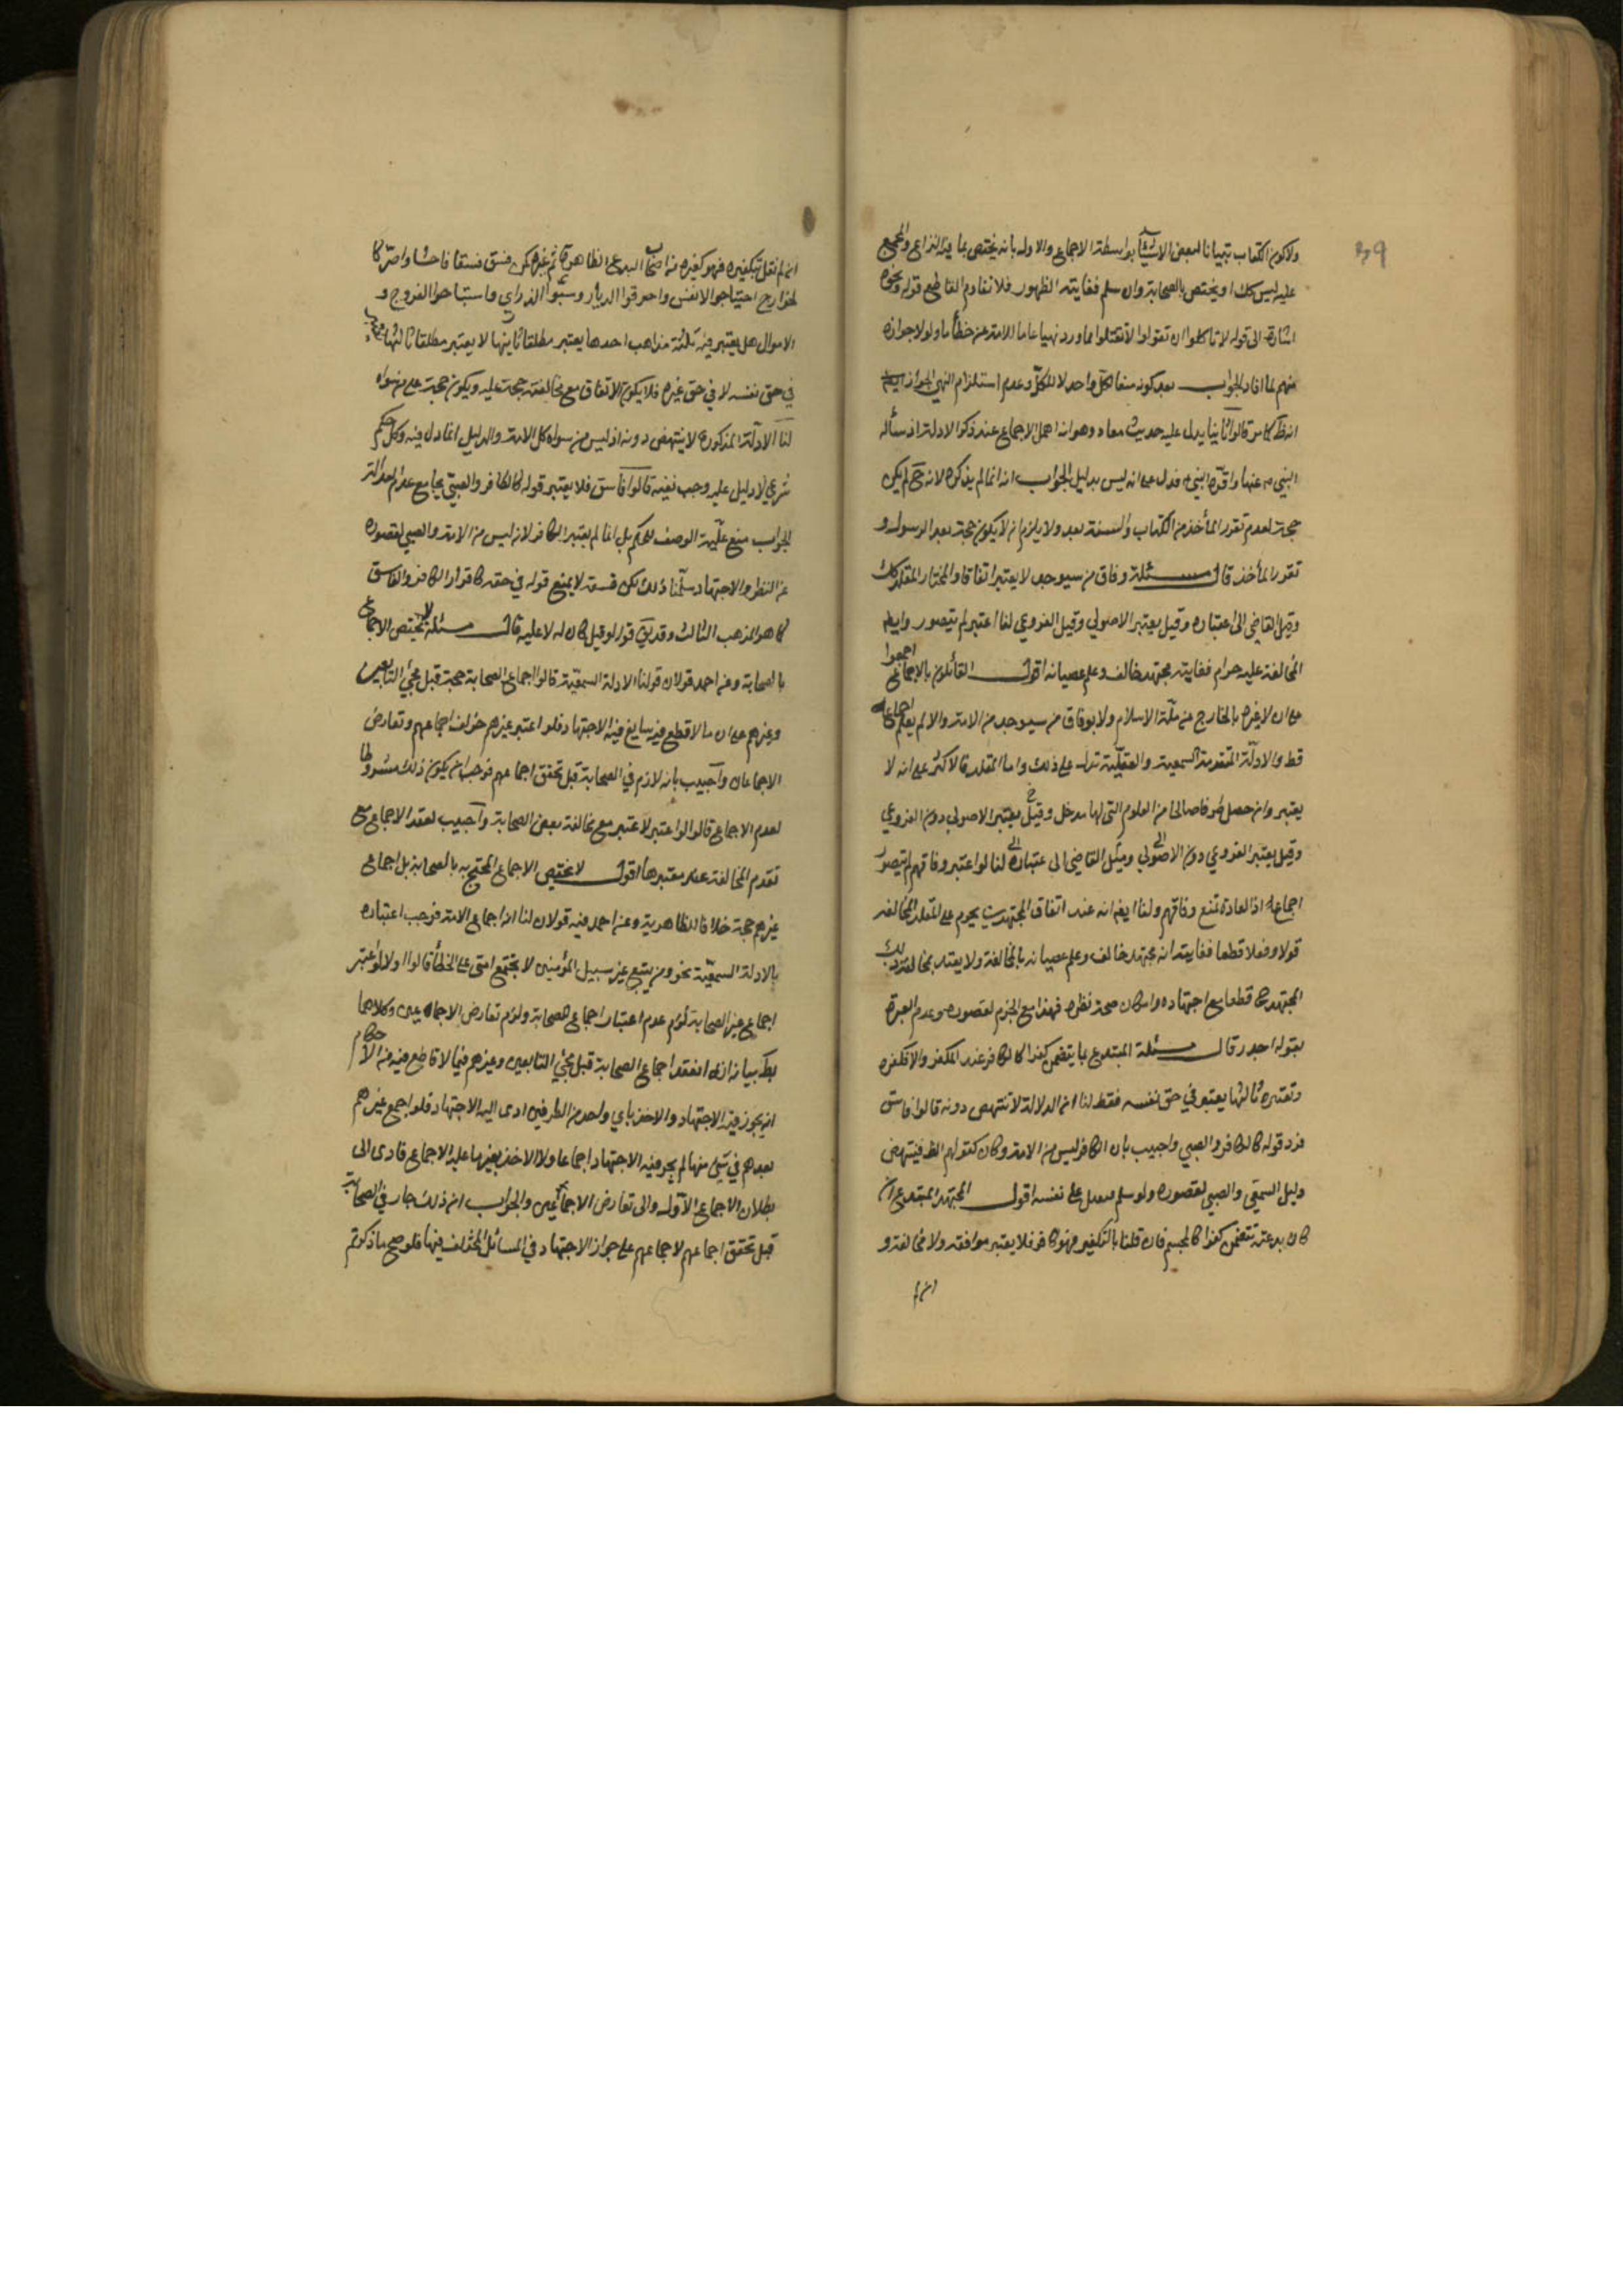 39
ولا كون الكتاب تبيانا لبعض الاشياء بواسطة الاجماع والاول بانه يختص بما فيه النزاع والمجمع
عليه ليس كك او يختص بالصحابة وان سلم فغايته الظهور فلا تقاوم القاطع قوله ونحوه
اشارة الى قوله لا تاكلوا ان تقولوا لا تقتلوا مما ورد نهيا عاما للامة عن خطأ ما ولولا جوازه
منهم لما افاد الجواب بعد كونه منعا لكل واحد لا للكل وعدم استلزام النهي الجواز
انه كما مر قالوا ثانيا يدل عليه حديث معاذ وهو انه اهمل الاجماع عند ذكر الادلة اذ سأله
النبي عنها واقره النبي فدل على انه ليس بدليل الجواب انه انما لم يذكره لانه ح لم يكن
حجة لعدم تقرر المأخذ من الكتاب والسنة بعد ولا يلزم ان لا يكون حجة بعد الرسول و
تقرر المأخذ قال مسئلة وفاق من سيوجد لا يعتبر اتفاقا والمختار المقلد كك
وميل القاضي الى اعتباره وقيل يعتبر الاصولي وقيل الفروعي لنا لو اعتبر لم يتصور وايضا
المخالفة عليه حرام فغايته مجتهد خالف وعلم عصيانه اقول القائلون بالاجماع اجمعوا
على ان لا عبرة بالخارج عن ملة الاسلام ولا بوفاق من سيوجد من الامة والا لم يعلم اجماع
قط والادلة المتقدمة السمعية والعقلية تدل على ذلك واما المقلد فالاكثر على انه لا
يعتبر وان حصل طرفا صالحا من العلوم التي لها مدخل وقيل يعتبر الاصولي دون الفروعي
وقيل يعتبر الفروعي دون الاصولي وميل القاضي الى اعتباره لنا لو اعتبر وفاقهم لم يتصور
اجماع اذ العادة تمنع وفاقهم ولنا ايضا انه عند اتفاق المجتهدين يحرم على المقلد المخالفة
قولا وفعلا قطعا فغايته انه مجتهد خالف وعلم عصيانه بالمخالفة ولا يعتد بمخالفة ذلك
المجتهد قطعا مع اجتهاده وامكان صحة نظره فهذا مع الجزم لقصوره وعدم العبرة
بقوله اجدر قال مسئلة المبتدع بما يتضمن كفرا كالكافر عند المكفر والا فكغيره
وتعتبره ثالثها يعتبر في حق نفسه فقط لنا ان الدلالة لا تنتهض دونه قالوا فاسق
فرد قوله كالكافر والصبي واجيب بان الكافر ليس من الامة وكان كقولهم الظ فينتهض
دليل السمعي والصبي لقصوره ولو سلم فيدل على نفسه اقول المجتهد المبتدع ان
كان بدعته تتضمن كفرا كالمجسم فان قلنا بالتكفير فهو كافر فلا يعتبر موافقته ولا مخالفته و
ان لم
ان لم نقل بتكفيره فهو كغيره من اصحاب البدع الظاهرة ثم غيره كمن فسق فسقا فاحشا واصر كا
لخوارج احتياجوا الانفس واحرقوا الديار وسبوا الذراري واستباحوا الفروج و
الاموال هل يعتبر فيه ثلثة مذاهب احدها يعتبر مطلقا ثانيها لا يعتبر مطلقا ثالثها يعتبر
في حق نفسه لا في حق غيره فلا يكون الاتفاق مع مخالفته حجة عليه ويكون حجة على من سواه
لنا الادلة المذكورة لا ينتهض دونه اذ ليس من سواه كل الامة والدليل انما دل فيه وكل حكم
شرعي لا دليل عليه وجب نفيه قالوا فاسق فلا يعتبر قوله كالكافر والصبي بجامع عدم العدالة
الجواب منع علية الوصف للحكم بل انما لم يعتبر الكافر لانه ليس من الامة والصبي لقصوره
عن النظر والاجتهاد سلمنا ذلك لكن فسقه لا يمنع قوله في حقه كاقرار الكافر والفاسق
كما هو المذهب الثالث وقد يق قوله لو قبل كان له لا عليه قال مسئلة لا يختص الاجماع
بالصحابة وعن احمد قولان قولنا الادلة السمعية قالوا اجماع الصحابة حجة قبل مجئ التابعين
وغيرهم على ان ما لا قطع فيه سايغ فيه الاجتهاد فلو اعتبر غيرهم خولف اجماعهم وتعارض
الاجماعان واجيب بانه لازم في الصحابة قبل تحقق اجماعهم فوجب ان يكون ذلك مشروطا
لعدم الاجماع قالوا لو اعتبر لاعتبر مع مخالفة بعض الصحابة واجيب لفقد الاجماع مع
تقدم المخالفة عند معتبرها اقول لا يختص الاجماع المحتج به بالصحابة بل اجماع
غيرهم حجة خلافا للظاهرية وعن احمد فيه قولان لنا انه اجماع الامة فوجب اعتباره
بالادلة السمعية نحو ومن يتبع غير سبيل المؤمنين لا يجتمع امتي على الخطأ قالوا اولا لو اعتبر
اجماع غير الصحابة لزم عدم اعتبار اجماع الصحابة ولزم تعارض الاجماعين وكلاهما
بط بيانه انه انعقد اجماع الصحابة قبل مجئ التابعين وغيرهم فيما لا قاطع فيه من الاحكام
انه يجوز فيه الاجتهاد والاخذ باي واحد من الطرفين ادى اليه الاجتهاد فلو اجمع غيرهم
بعدهم في شئ منها لم يجز فيه الاجتهاد اجماعا ولا الاخذ بغير ما عليه الاجماع فادى الى
بطلان الاجماع الاول والى تعارض الاجماعين والجواب ان ذلك جار في الصحابة
قبل تحقق اجماعهم لاجماعهم على جواز الاجتهاد في المسائل المختلف فيها فلو صح ما ذكرتم